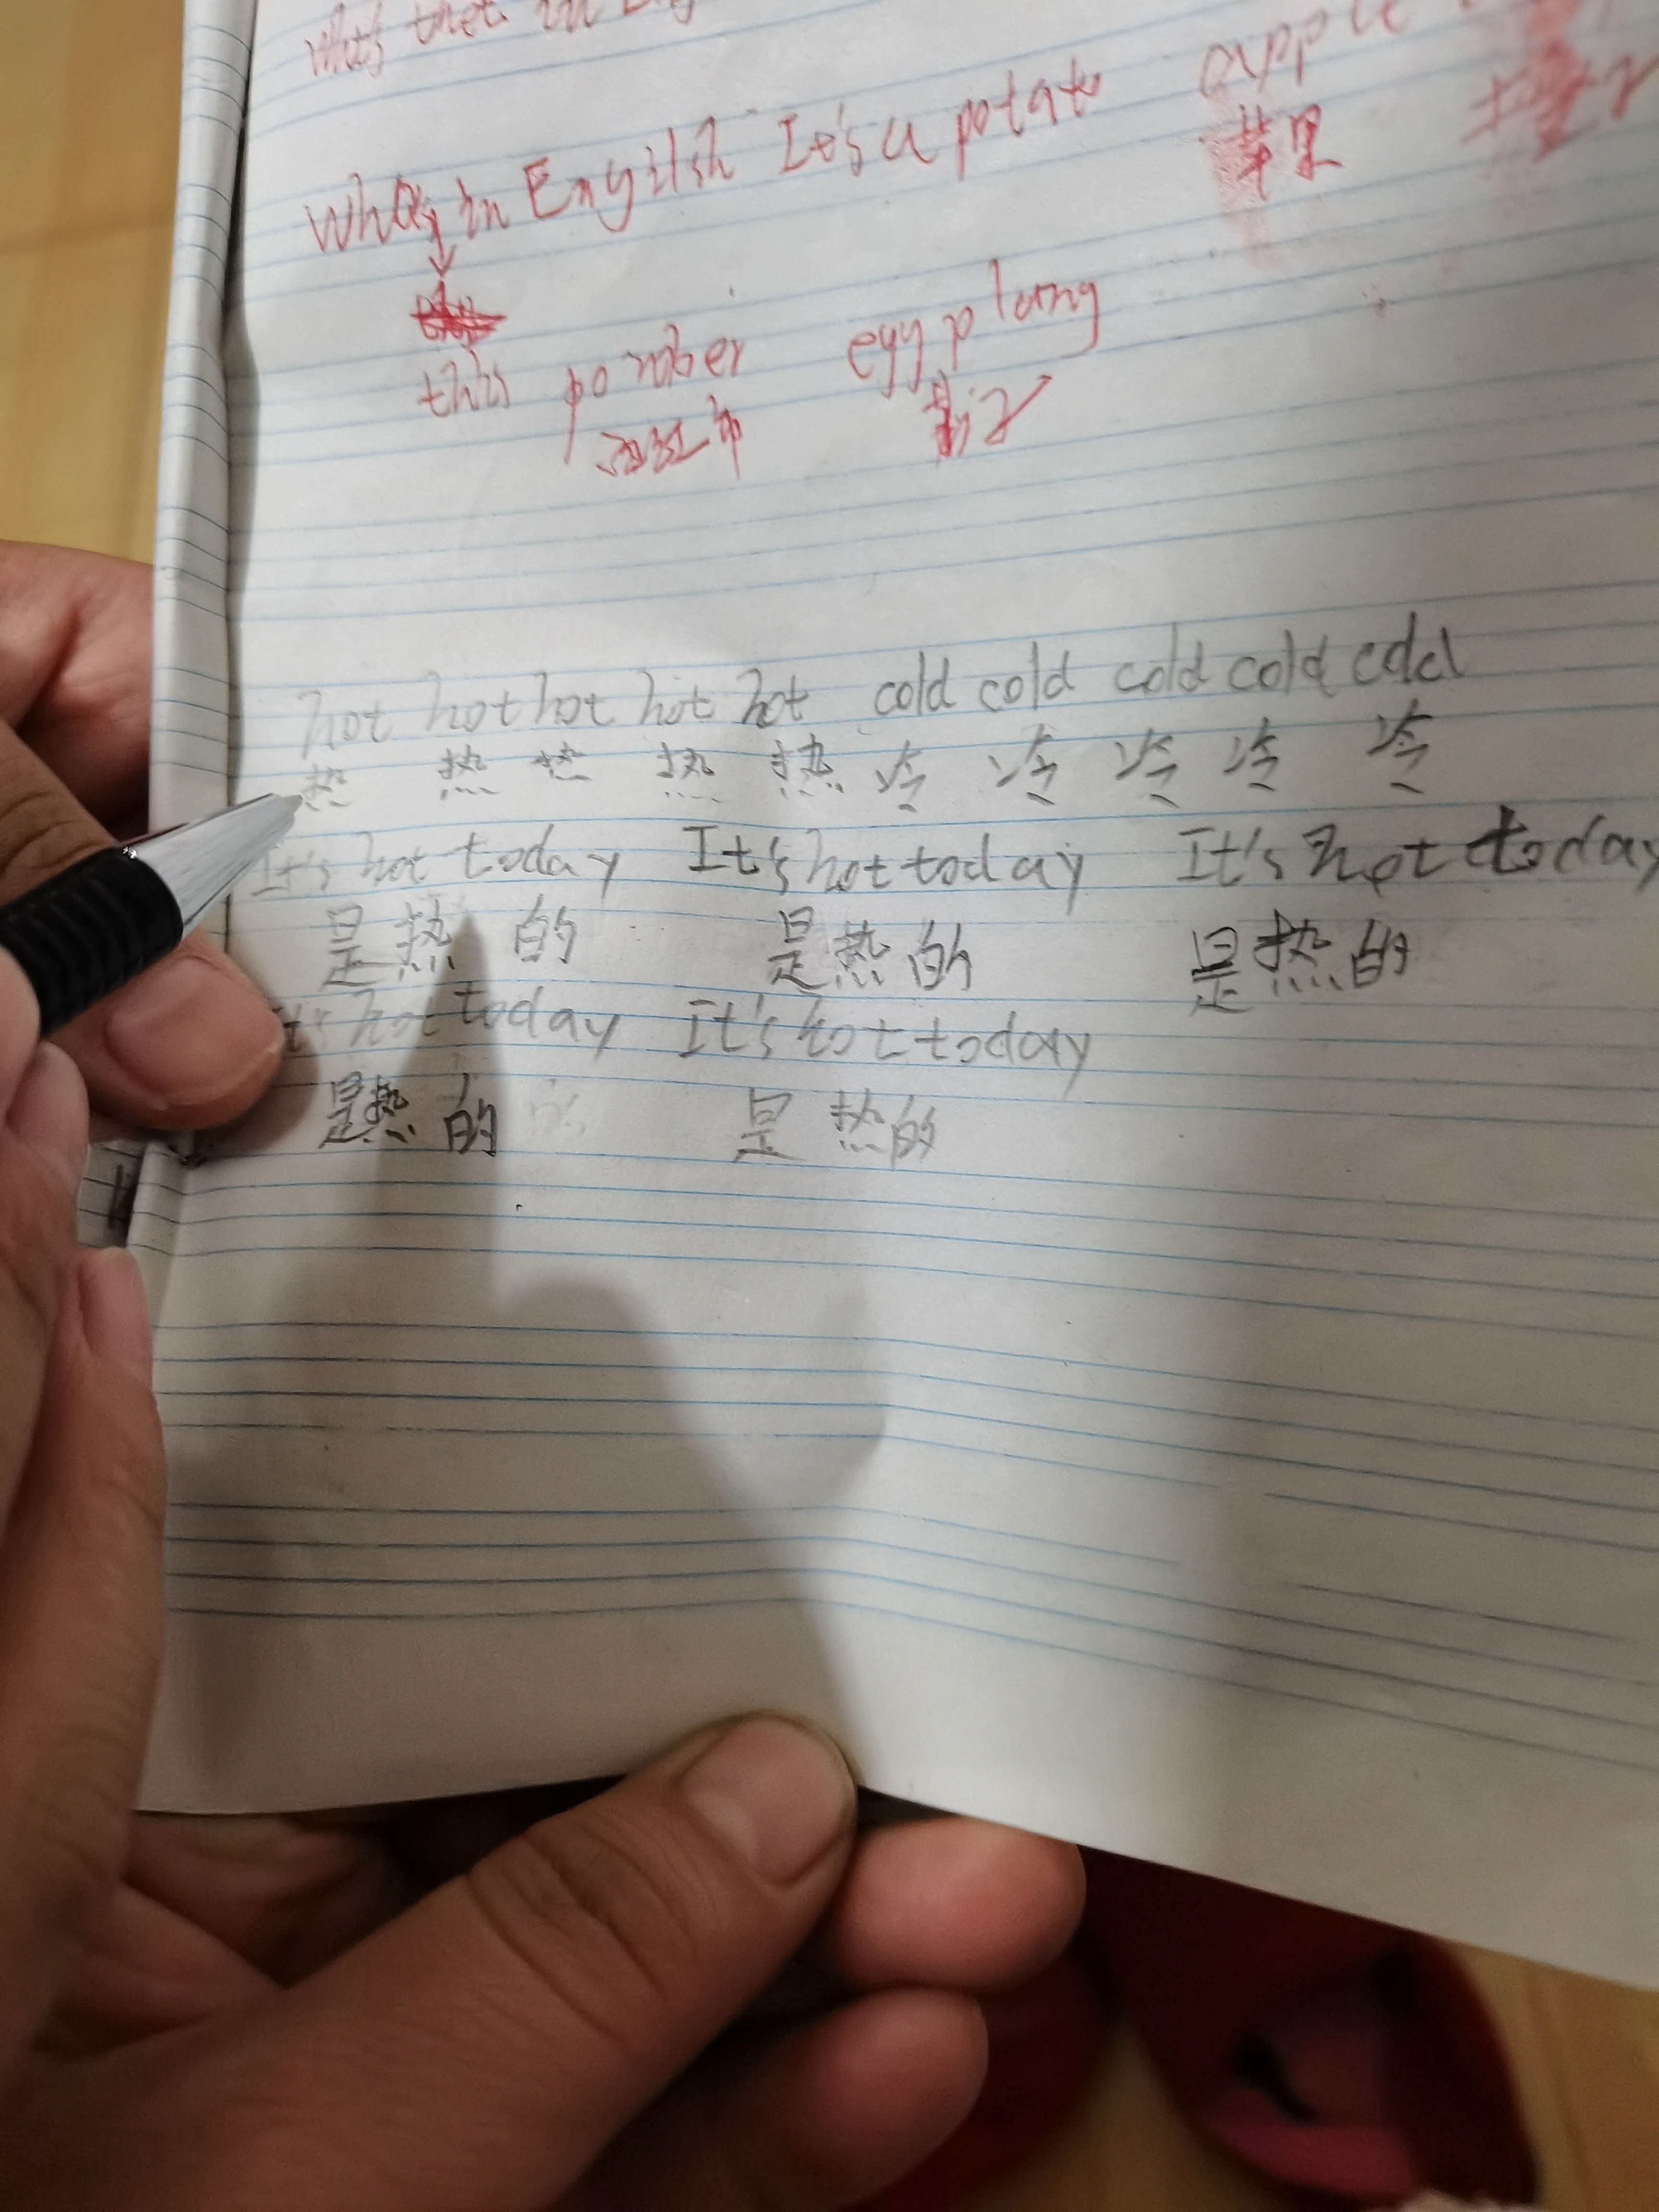 in English It's a potato apple
苹果
this
hot hot hot hot hot cold cold cold cold cold
热 热 热 热 热 冷 冷 冷 冷 冷
It's hot today It's hot today It's hot today
是热的 是热的 是热的
It's hot today It's hot today
是热的 是热的